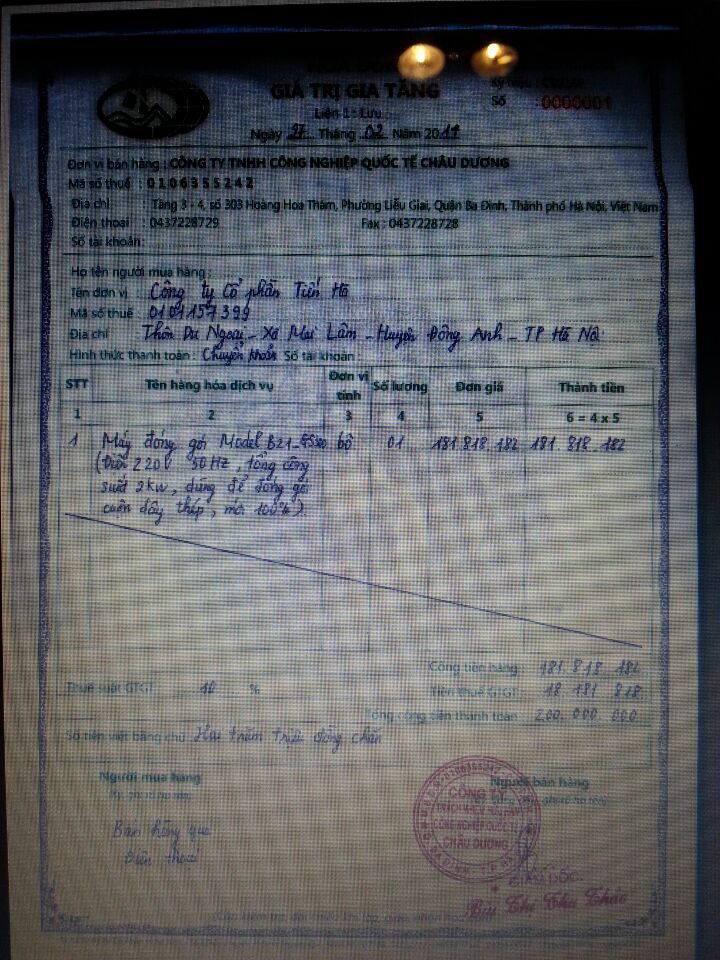 HÓA ĐƠN
GIÁ TRỊ GIA TĂNG
Liên 1: Lưu
Số : 0000001
Ngày 27 Tháng 02 Năm 2017
Đơn vị bán hàng : CÔNG TY TNHH CÔNG NGHIỆP QUỐC TẾ CHÂU DƯƠNG
Mã số thuế : 0106355242
Địa chỉ : Tầng 3 - 4, số 303 Hoàng Hoa Thám, Phường Liễu Giai, Quận Ba Đình, Thành phố Hà Nội, Việt Nam
Điện thoại : 0437228729 Fax : 0437228728
Số tài khoản:
Họ tên người mua hàng :
Tên đơn vị : Công ty Cổ phần Tiến Hà
Mã số thuế : 0101157399
Địa chỉ : Thôn Du Ngoại - Xã Mai Lâm - Huyện Đông Anh - TP Hà Nội
Hình thức thanh toán : Chuyển khoản Số tài khoản :
STT Tên hàng hóa dịch vụ Đơn vị tính Số lượng Đơn giá Thành tiền
1 2 3 4 5 6 = 4 x 5
1 Máy đóng gói Model B21 bộ 01 181.818.182 181.818.182
(Điện 220V 50Hz, tổng công
suất 2kw, dùng để đóng gói
cuộn dây thép, mới 100%).
Cộng tiền hàng : 181.818.182
Thuế suất GTGT : 10 % Tiền thuế GTGT : 18.181.818
Tổng cộng tiền thanh toán : 200.000.000
Số tiền viết bằng chữ : Hai trăm triệu đồng chẵn
Người mua hàng Người bán hàng
Bán hàng qua
Điện thoại
CÔNG TY
TRÁCH NHIỆM HỮU HẠN
CÔNG NGHIỆP QUỐC TẾ
CHÂU DƯƠNG
GIÁM ĐỐC
Bùi Thị Thu Thảo